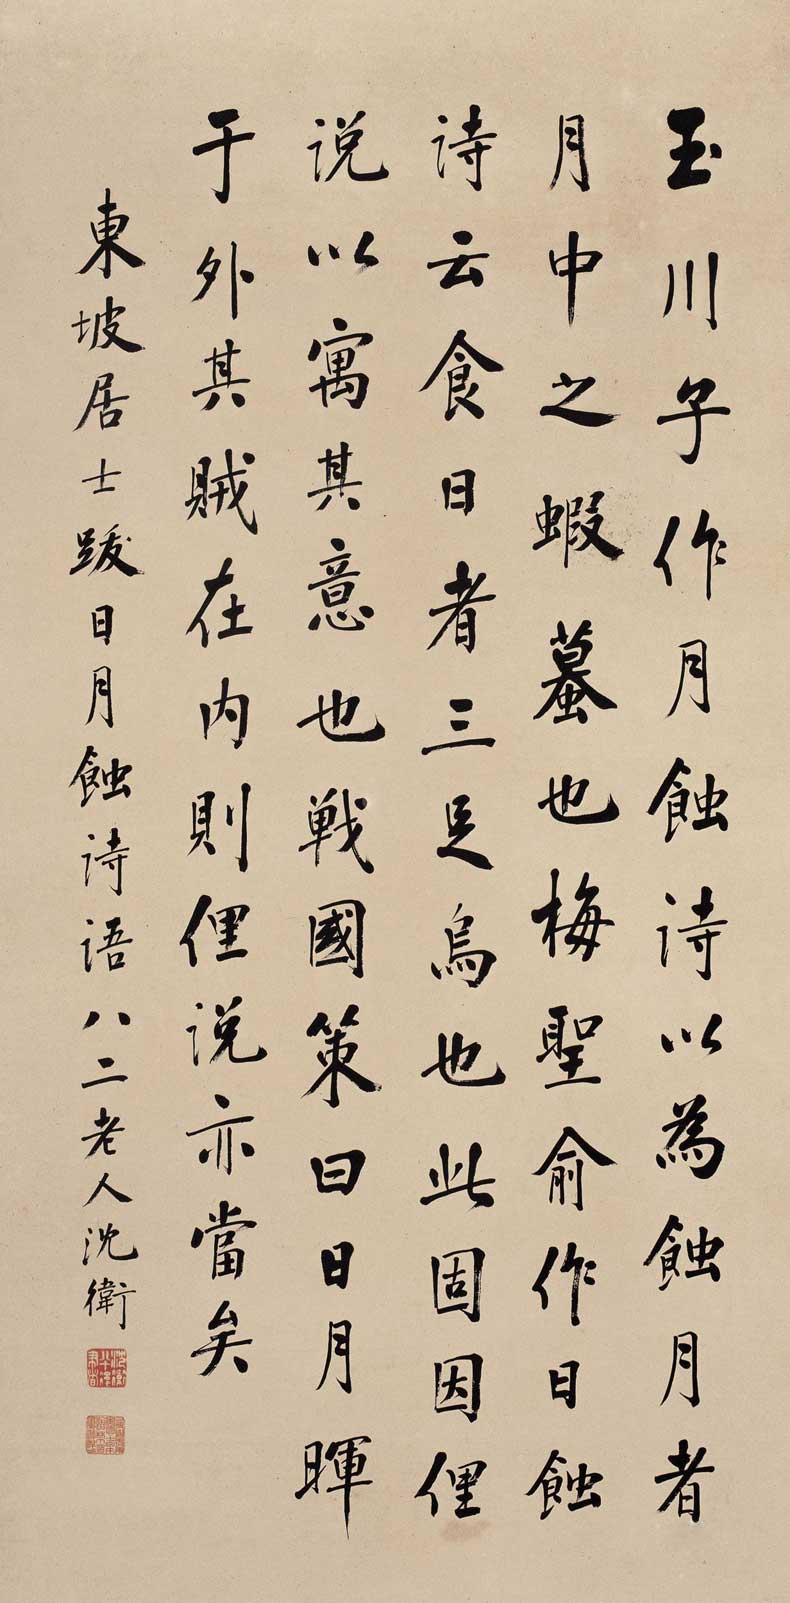 玉川子作月蝕詩以為蝕月者
月中之蝦蟇也梅聖俞作日蝕
詩云食日者三足烏也此固因俚
說以寓其意也戰國策曰日月暉
于外其賊在内則俚說亦當矣
東坡居士跋日月蝕詩語八二老人沈衛